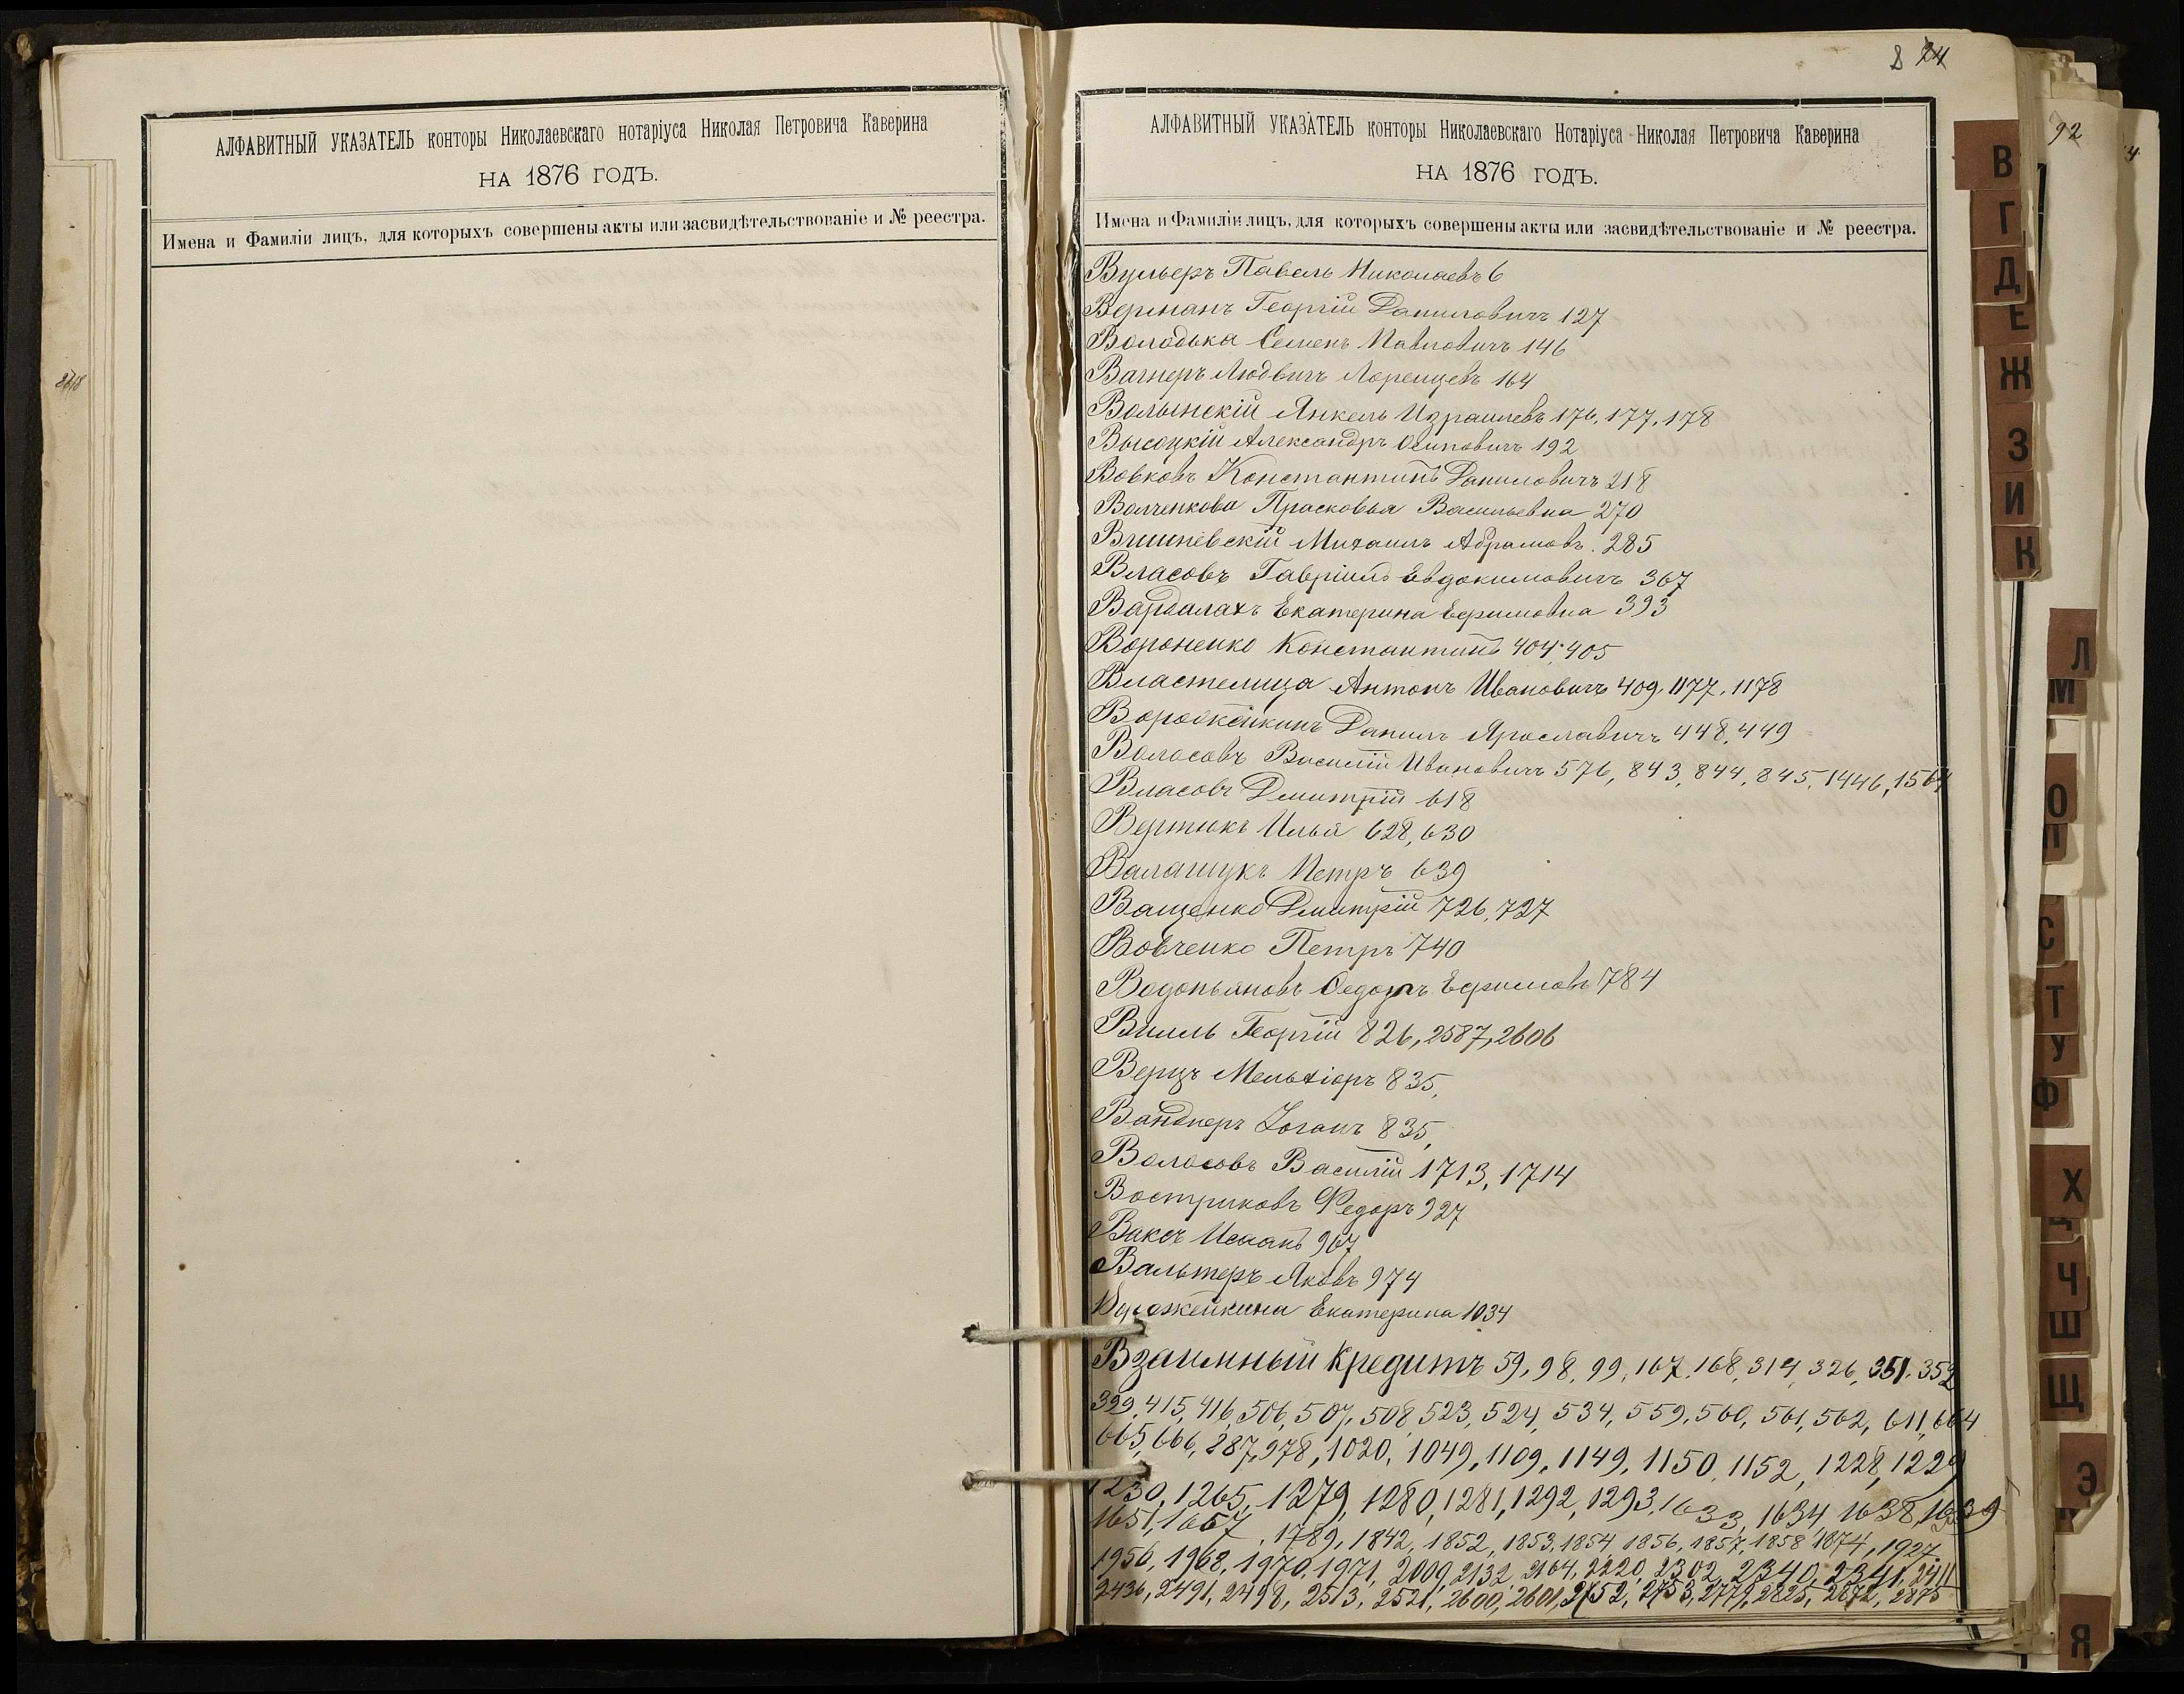 АЛФАВИТНЫЙ УКАЗАТЕЛЬ конторы Николаевскаго нотаріуса Николая Петровича Каверина
НА 1876 ГОДЪ.
Имена и Фамиліи лицъ, для которыхъ совершены акты или засвидѣтельствованіе и № реестра.
8 24
АЛФАВИТНЫЙ УКАЗАТЕЛЬ конторы Николаевскаго Нотаріуса Николая Петровича Каверина
НА 1876 ГОДЪ.
Имена и Фамиліи лицъ, для которыхъ совершены акты или засвидѣтельствованіе и № реестра.
Вульеръ Павелъ Николаевъ 6
Верманъ Георгій Даниловичъ 127
Володька Семенъ Павловичъ 146
Вагнеръ Людвигъ Лоренцевъ 164
Волынскій Янкель Израилевъ 176, 177, 178
Высоцкій Александръ Осиповичъ 192
Вовковъ Константинъ Даниловичъ 218
Волченкова Прасковья Васильевна 270
Вишневскій Михаилъ Абрамовъ. 285
Власовъ Гавріилъ Евдокимовичъ 367
Вардалахъ Екатерина Ефимовна 393
Вороненко Константинъ 404, 405
Властелица Антонъ Ивановичъ 409, 1177, 1178
Данилъ Ярославичъ 448, 449
Волосовъ Василій Ивановичъ 576, 843, 844, 845, 1446, 1564
Власовъ Дмитрій 618
Илья 628, 630
Петръ 639
Ващенко Дмитрій 726, 727
Вовченко Петръ 740
Водопьяновъ Ѳедоръ Ефимовъ 784
Вилль Георгій 826, 2587, 2606
Верцъ Мельхіоръ 835,
Ванднеръ Іоганъ 835,
Волосовъ Василій 1713, 1714
Востриковъ Федоръ 927
Ваксъ Исаакъ 967
Вальтеръ Яковъ 974
Ворожейкина Екатерина 1034
Взаимный Кредитъ 59, 98, 99, 167, 168, 314, 326, 351, 352
399, 415, 416, 506, 507, 508, 523, 524, 534, 559, 560, 561, 562, 611, 664
665, 666, 887, 978, 1020, 1049, 1109, 1149, 1150, 1152, 1228, 1229
1230, 1265, 1279, 1280, 1281, 1292, 1293, 1633, 1634, 1638, 1639
1651, 1657, 1789, 1842, 1852, 1853, 1854, 1856, 1857, 1858, 1874, 1927
1956, 1968, 1970, 1971, 2009, 2132, 2164, 2220, 2302, 2340, 2341, 2411
2436, 2491, 2498, 2513, 2521, 2600, 2601, 2752, 2753, 2779, 2825, 2872, 2875
92
В
Г
Д
Е
Ж
З
И
К
Л
М
О
П
С
Т
У
Ф
Х
Ц
Ч
Ш
Щ
Э
Я